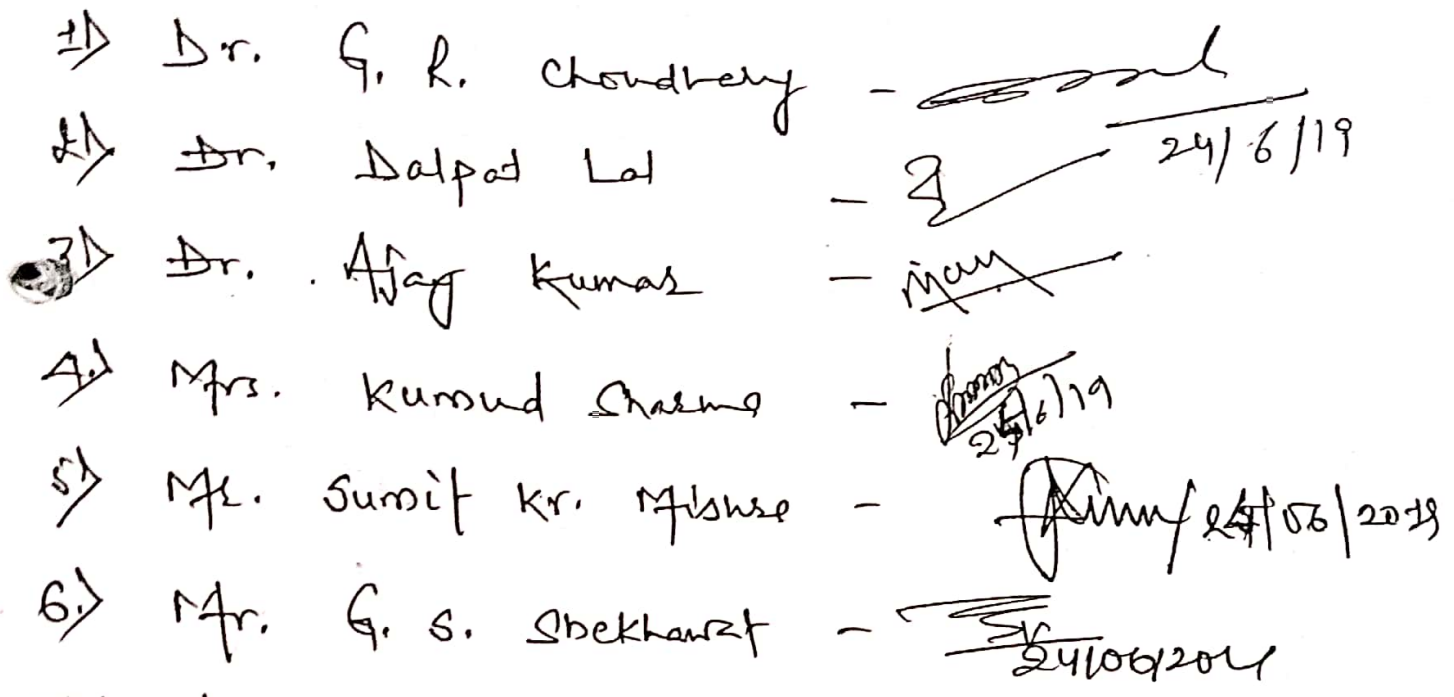 1) Dr. G. R. Choudhery -
24/6/19
2) Dr. Dalpat Lal -
3) Dr. Ajay Kumar - Ajay
4.) Mrs. Kumud Sharma -
24/6/19
5) Mr. Sumit Kr. Mishra - 24/06/2019
6.) Mr. G. S. Shekhawat -
24/06/2019